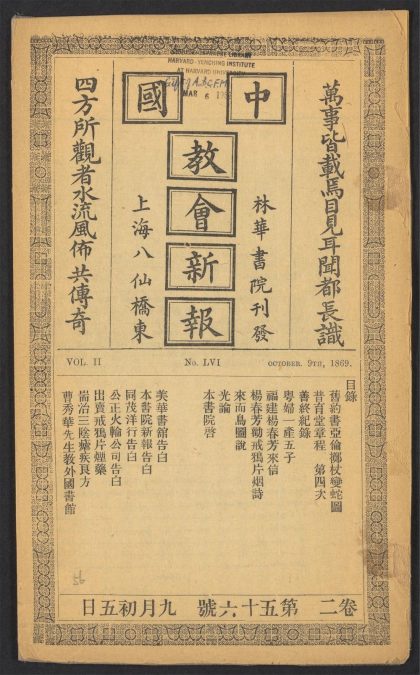 HARVARD-YENCHING INSTITUTE
AT HARVARD UNIVERSITY
MAR 6
萬事皆載焉目見耳聞都長識
林華書院刊發
中國
教會新報
上海八仙橋東
四方所觀者水流風佈共傳奇
VOL. II No. LVI OCTOBER. 9TH, 1869.
目錄
舊約書亞倫擲杖變蛇圖
昔育堂章程 第四次
善終紀錄
粵婦一產五子
福建楊春芳來信
楊春芳勸戒鴉片烟詩
來而鳥圖說
光論
本書院啓
美華書館告白
本書院新報告白
同茂洋行告白
公正火輪公司告白
出賣戒鴉片煙藥
耑治三陰瘧疾良方
曹秀華先生教外國書館
56
卷二 第五十六號 九月初五日